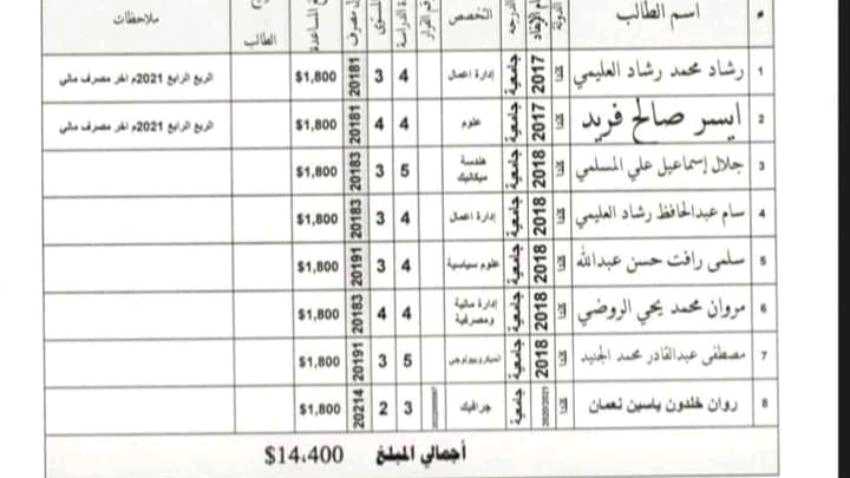 # اسم الطالب الدولة الدرجة التخصص المستوى ملاحظات
1 رشاد محمد رشاد العليمي كندا 2017 جامعية إدارة اعمال 4 3 20181 $1,800 الربع الرابع 2021م اخر مصرف مالي
2 ايسر صالح فريد كندا 2017 جامعية علوم 4 4 20181 $1,800 الربع الرابع 2021م اخر مصرف مالي
3 جلال إسماعيل علي المسلمي كندا 2018 جامعية هندسة ميكانيك 5 3 20183 $1,800
4 سام عبدالحافظ رشاد العليمي كندا 2018 جامعية إدارة اعمال 4 3 20183 $1,800
5 سلمى رافت حسن عبدالله كندا 2018 جامعية علوم سياسية 4 3 20191 $1,800
6 مروان محمد يحي الروضي كندا 2018 جامعية إدارة مالية ومصرفية 4 4 20183 $1,800
7 مصطفى عبدالقادر محمد الجنيد كندا 2018 جامعية الميكروبيولوجي 5 3 20191 $1,800
8 روان خلدون ياسين نعمان كندا 2020/2021 جامعية جرافيك 3 2 20214 $1,800
أجمالي المبلغ $14،400